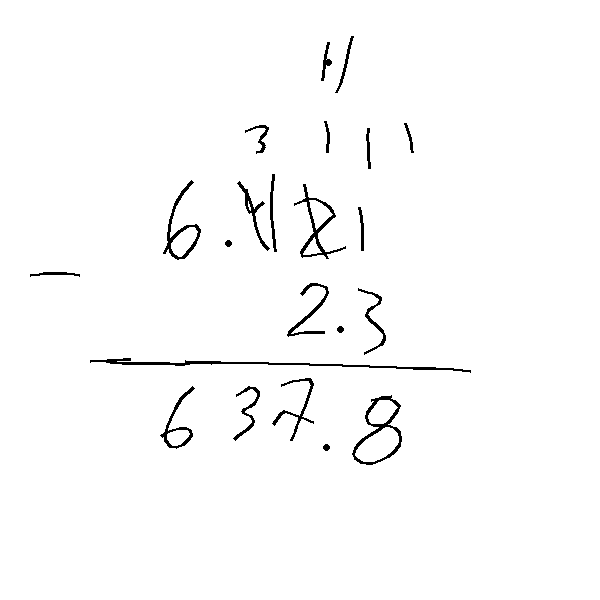 11
3 1 1 1
6.421
- 2.3
637.8